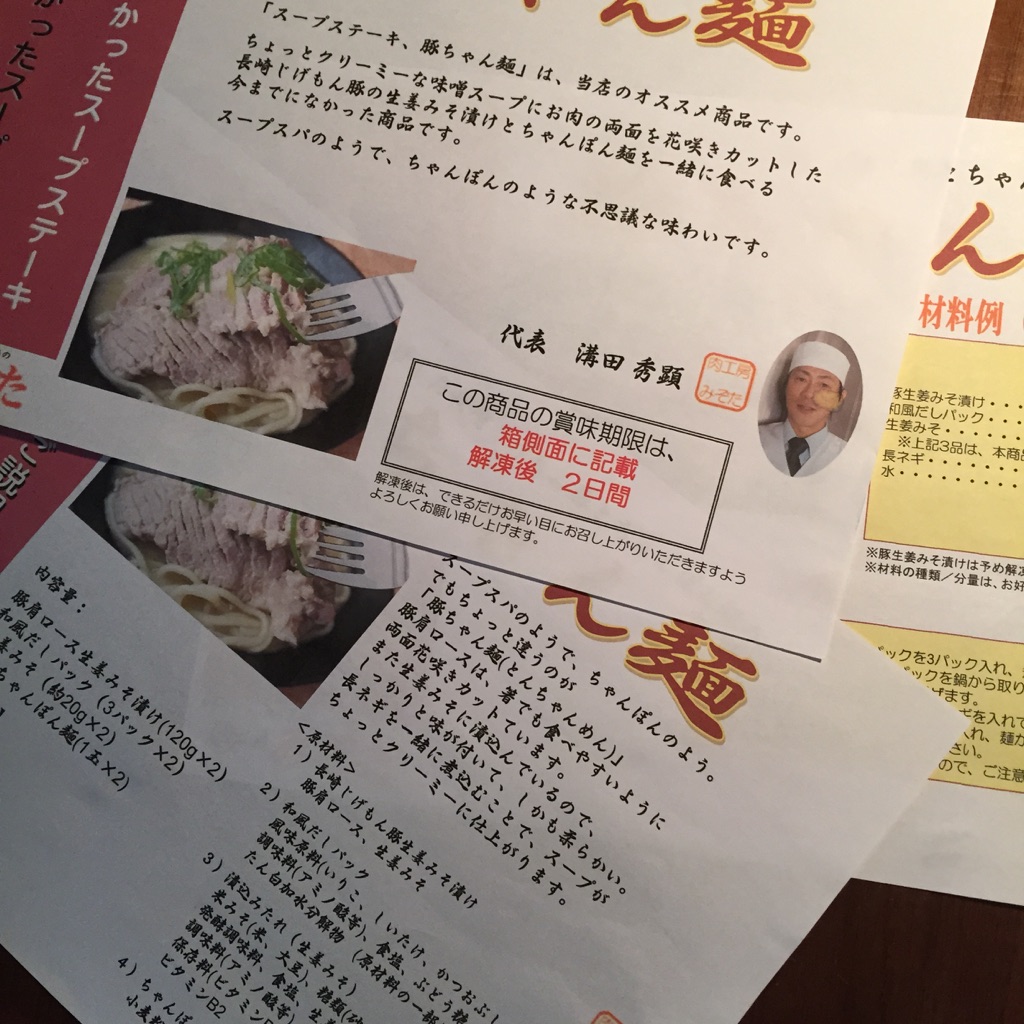 かったスープステーキ
かったスープ
ん麺
「スープステーキ、豚ちゃん麺」は、当店のオススメ商品です。
ちょっとクリーミーな味噌スープにお肉の両面を花咲きカットした
長崎じげもん豚の生姜みそ漬けとちゃんぽん麺を一緒に食べる
今までになかった商品です。
スープスパのようで、ちゃんぽんのような不思議な味わいです。
代表 溝田 秀顕
肉工房
みぞた
この商品の賞味期限は、
箱側面に記載
解凍後 2日間
解凍後は、できるだけお早い目にお召し上がりいただきますよう
よろしくお願い申し上げます。
とちゃん
ん
材料例
豚生姜みそ漬け・・・
和風だしパック・・・・
生姜みそ・・・・・・・
※上記3品は、本商品
長ネギ・・・・・・・・
水・・・・・・・・・・
※豚生姜みそ漬けは予め解凍
※材料の種類/分量は、お好
パックを3パック入れ、
パックを鍋から取り
げます。
ギを入れて
入れ、麺が
さい。
ので、ご注意
た
ご説
内容量:
豚肩ロース生姜みそ漬け(120g×2)
和風だしパック(3パック×2)
生姜みそ(約20g×2)
ちゃんぽん麺(1玉×2)
ん麺
スープスパのようで、ちゃんぽんのよう。
でもちょっと違うのが
「豚ちゃん麺(とんちゃんめん)」
豚肩ロースは、箸でも食べやすいように
両面花咲きカットしています。
また生姜みそに漬込んでいるので、
しっかりと味が付いて、しかも柔らかい。
長ネギを一緒に煮込むことで、スープが
ちょっとクリーミーに仕上がります。
<原材料>
1)長崎じげもん豚生姜みそ漬け
豚肩ロース、生姜みそ
2)和風だしパック
風味原料(いりこ、しいたけ、かつおぶし
調味料(アミノ酸等)、食塩、ぶどう糖
たん白加水分解物 (原材料の一部
3)漬込みたれ(生姜みそ)
米みそ(米、大豆)、糖類(砂
発酵調味料、食塩、生姜
調味料(アミノ酸等)
保存料(ビタミン
ビタミンB2
4)ちゃんぽ
小麦粉